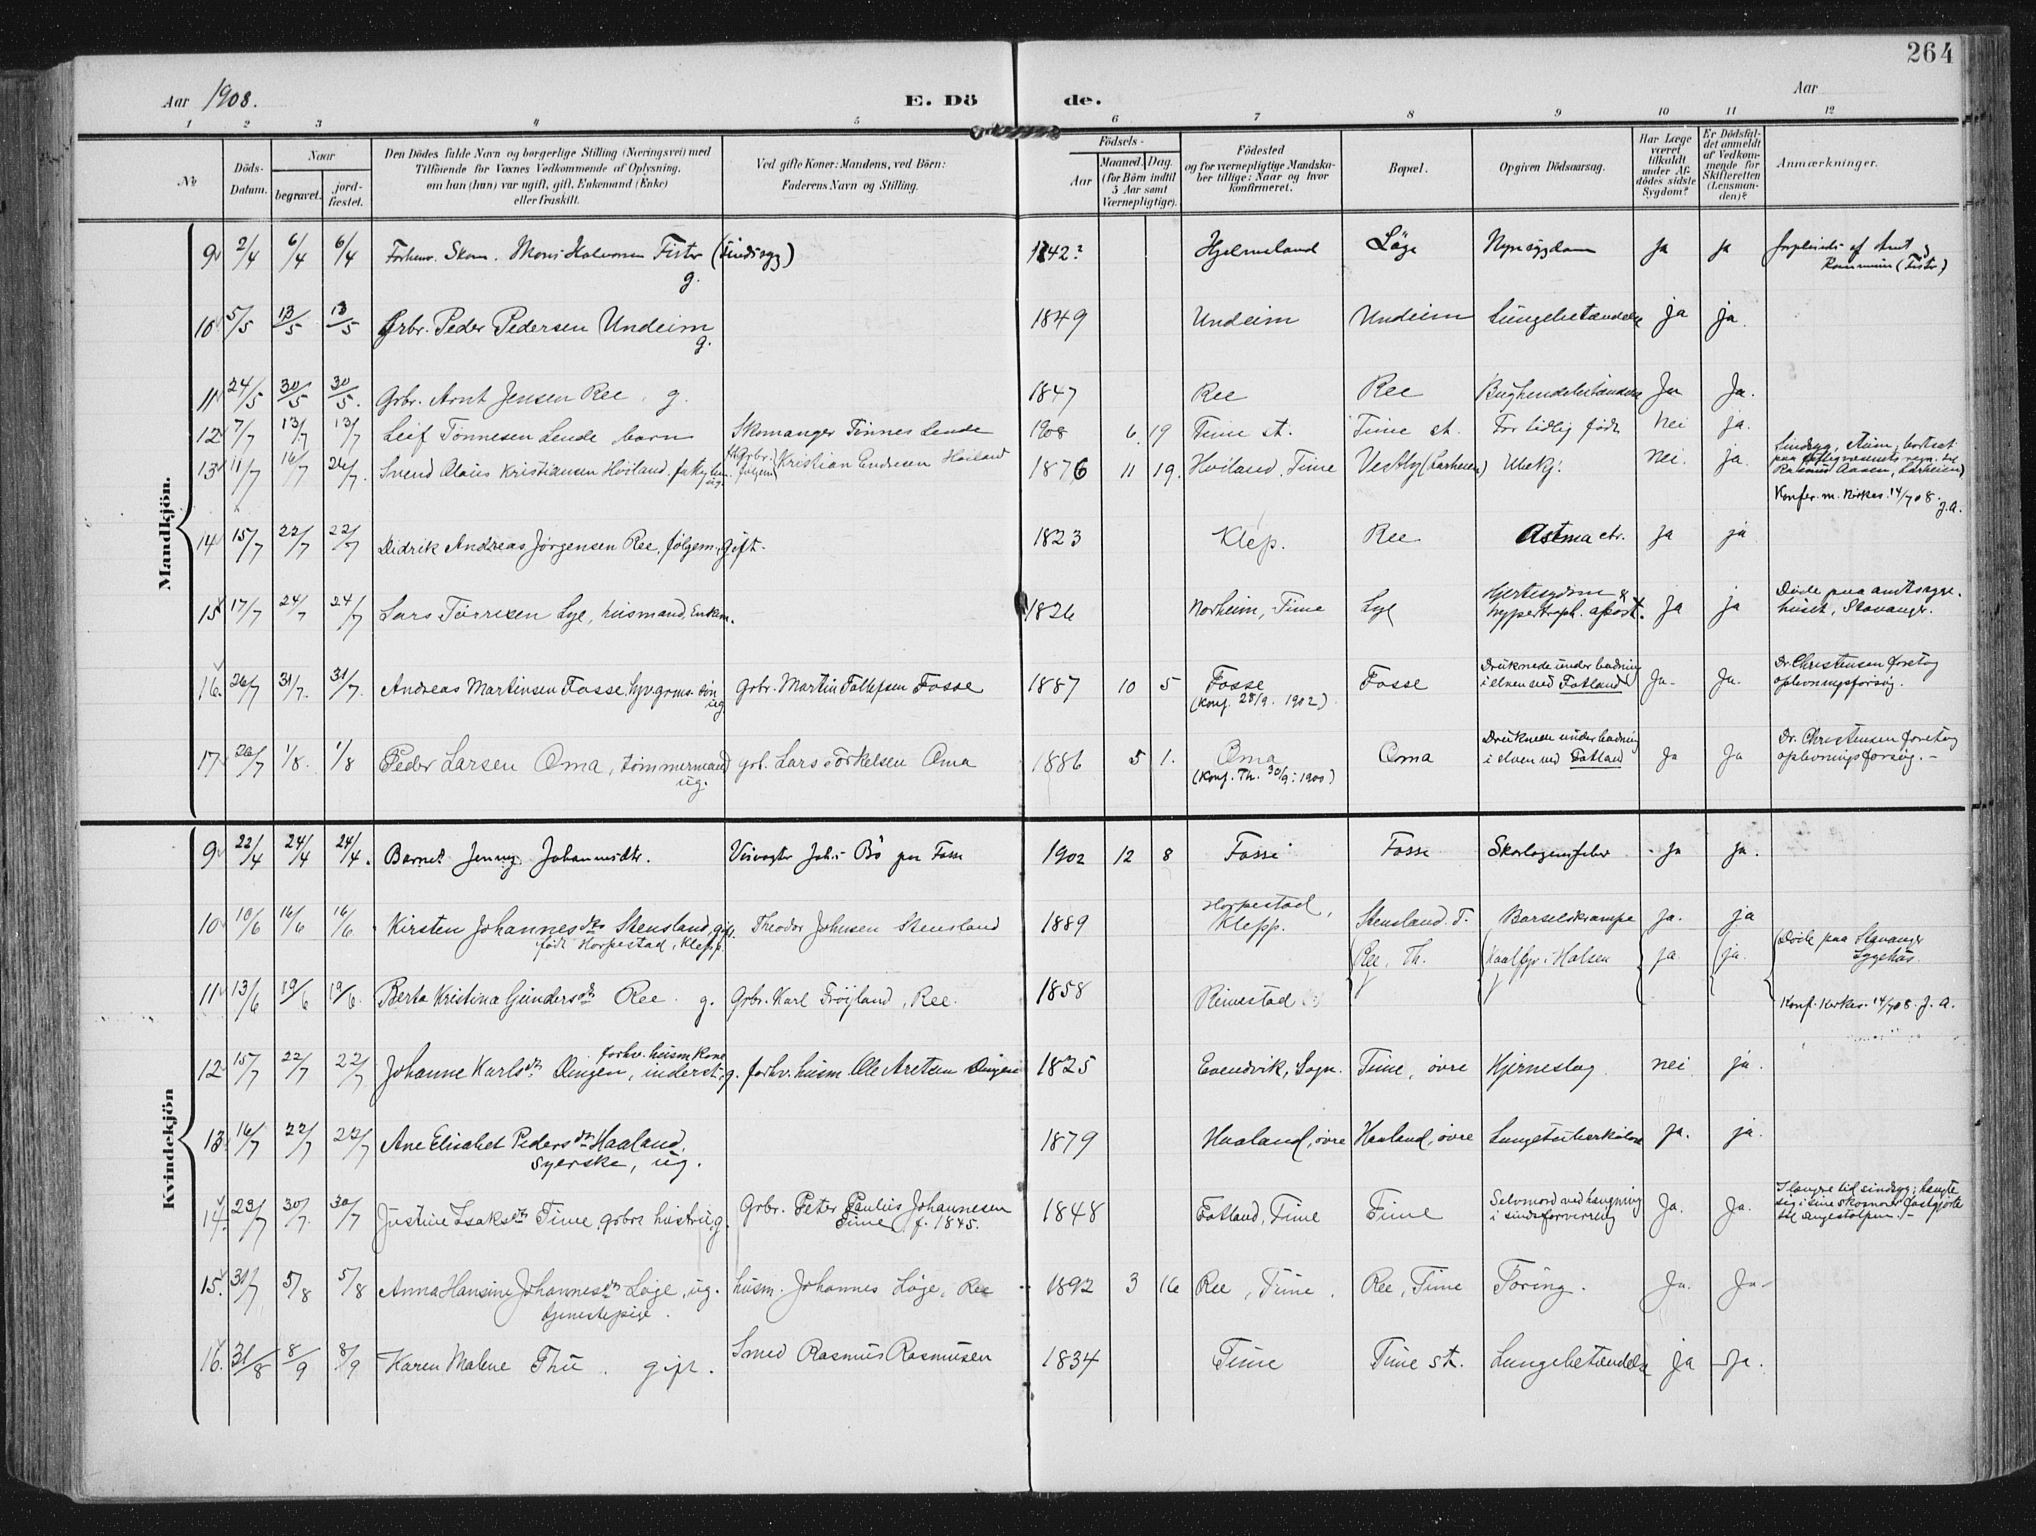 264
Aar 1908.
E. Dö de.
Aar
1 2 3 4 5 6 7 8 9 10 11 12
№
Döds-Datum.
Naar
begravet.
jord-fæstet.
Den Dödes fulde Navn og borgerlige Stilling (Næringsvei) med
Tilföiende for Voxnes Vedkommende af Oplysning,
om han (hun) var ugift, gift, Enkemand (Enke)
eller fraskilt.
Ved gifte Koner: Mandens, ved Börn:
Faderens Navn og Stilling.
Födsels-
Aar
Maaned. Dag.
(for Börn indtil
5 Aar samt
Værnepligtige).
Födested
og for værnepligtige Mandska-
ber tillige: Naar og hvor
konfirmeret.
Bopæl.
Opgiven Dödsaarsag.
Har Læge
været
tilkaldt
under Af-
dödes sidste
Sygdom?
Er Dödsfal-
det anmeldt
af Vedkom-
mende for
Skifteretten
(Lensman-
den)?
Anmærkninger.
Mandkjön.
9 2/4 6/4 6/4 Forhenv. Skom. Mons Halvorsen Fister (Sindssyg) g. 1842? Hjelmeland Löge Nyresygdom ja ja forpleiedes af Amt & Kommune (Fister)
10 5/5 13/5 13/5 Grbr. Peder Pedersen Undeim g. 1849 Undeim Undeim Lungebetændelse ja ja.
11 24/5 30/5 30/5. Grbr. Arnt Jensen Ree. g. 1847 Ree Ree Bughindebetændelse Ja Ja.
12 7/7 13/7 13/7 Leif Tönnesen Lende barn Skomager Tönnes Lende 1908 6. 19 Time st. Time st. For tidlig födt nei ja.
13 11/7 16/7 26/7. Svend Olaus Kristiansen Höiland. ug. Kristian Endresen Höiland 1876 11 19. Höiland, Time Vestly Ubekj. nei. ja. Konfer. m. Kirkes. 14/7 08. J.A.
14 15/7 22/7 22/7 Didrik Andreas Jörgensen Ree, fölgem., gift. 1823 Klep. Ree Astma etc. ja ja
15 17/7 24/7 24/7 Lars Törresen Lye, husmand, Enkem. 1826 Norheim, Time Lye Hjertesygdom & hypertroph. ja ja Döde paa amtssyge-
huset, Stavanger.
16. 26/7 31/7. 31/7. Andreas Martinsen Fosse, ug. grbr. Martin Tollefsen Fosse 1887 10 5 Fosse
(Konf. 28/9. 1902) Fosse Druknede under badning
i elven ved Fotland Ja. Ja. Dr. Christensen foretog
oplivningsforsög.
17 26/7 1/8. 1/8 Peder Larsen Oma, tömmermand ug. gbr. Lars Torkelsen Oma 1886 5 1. Oma
(Konf. Th. 30/9. 1900) Oma Druknede under badning
i elven ved Fotland Ja Ja Dr. Christensen foretog
oplivningsforsög. -
Kvindekjön
9 22/4 24/4 24/4. Barnet Jenny Johannesdtr. Johs Bö paa Fosse 1902 12 8 Fosse Fosse Skarlagensfeber ja ja.
10 10/6 16/6 16/6 Kirsten Johannesdtr Stensland, gift.
född Horpestad, Klepp Theodor Johnsen Stensland 1889 Horpestad,
Klepp. Stensland. T. Barselskrampe ja. ja
11 13/6 19/6 19/6. Berta Kristina Gundersdtr Ree. g. Grbr. Karl Fröyland, Ree. 1858 Rimestad Ree, Th. Halsen ja. ja. (Döde paa Stavanger
Sygehus.
Konf. Kirkes. 14/7 08. J. A.
12 15/7 22/7 22/7 Johanne Karlsdtr Dingen, forhv. husm. Kone inderst, g. forhv. husm. Ole Aretsen Dingen 1825 Evendvik, Sogn. Time, övre Hjerneslag nei ja.
13 16/7 22/7 22/7 Ane Elisabet Pedersdtr Haaland,
syerske, ug. 1879 Haaland, övre Haaland, övre Lungetuberkulose ja. ja.
14. 23/7 30/7. 30/7 Justine Isaksdtr Time, grbrs hustru g. Grbr. Peter Paulius Johannesen
Time, f. 1845. 1848 Fotland, Time Time Selvmord ved hængning
i sindsforvirring Ja. Ja. I længre tid sindsyg; hængte
sig i sine skoremer fastgjorte
til sengestolpen. -
15. 31/7 5/8 5/8 Anna Hansine Johannesdtr Löge, ug.
tjenestepige. husm. Johannes Löge, Ree 1892 3 16 Ree, Time. Ree, Time Tæring. Ja. Ja
16. 31/8 8/9 8/9 Karen Malene Thu. gift. Smed Rasmus Rasmusen 1834 Time Time st. Lungebetændelse ja Ja.